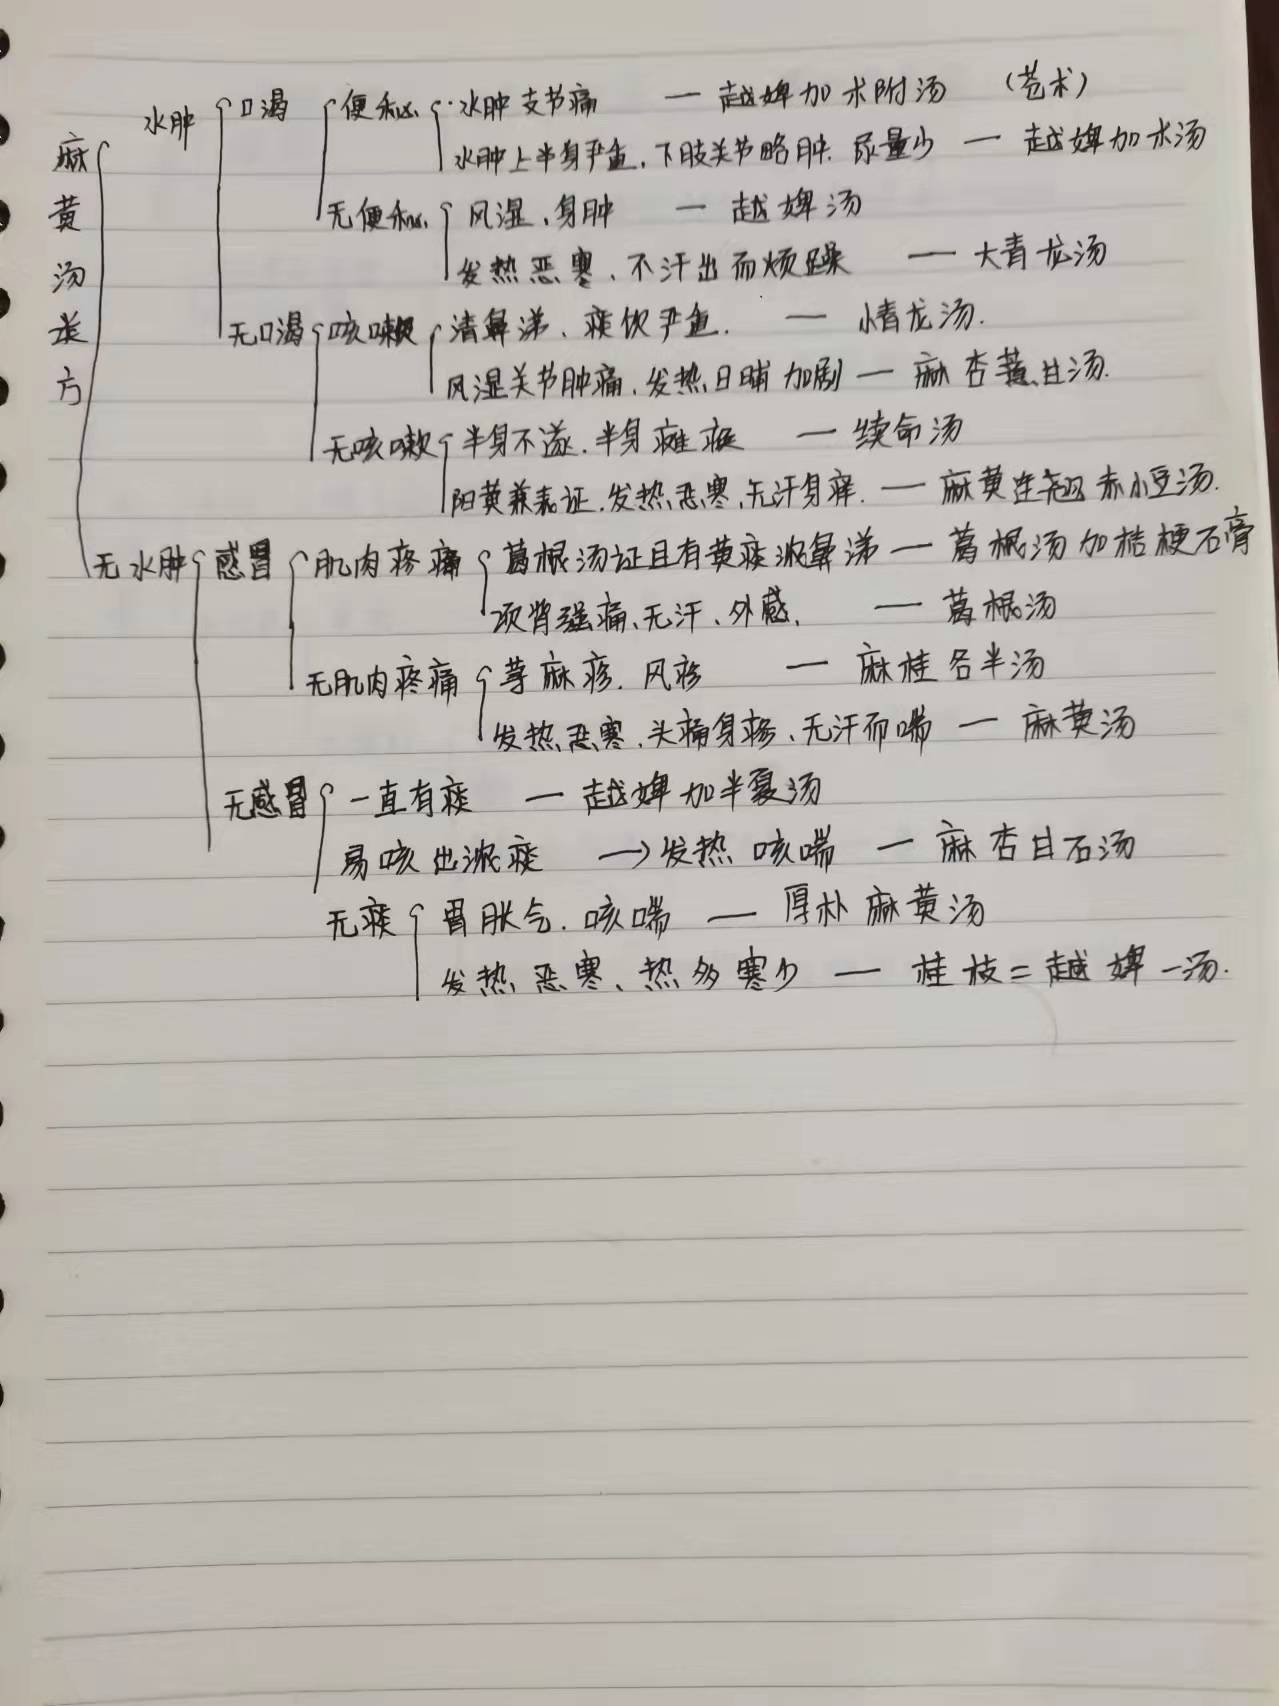 麻黄汤类方
水肿 口渴 便秘 水肿支节痛 — 越婢加术附汤 (苍术)
水肿上半身严重、下肢关节略肿、尿量少 — 越婢加术汤
无便秘 风湿、身肿 — 越婢汤
发热恶寒、不汗出而烦躁 — 大青龙汤
无口渴 咳嗽 清鼻涕、痰饮严重. — 小青龙汤.
风湿关节肿痛、发热日晡加剧 — 麻杏薏甘汤.
无咳嗽 半身不遂、半身瘫痪 — 续命汤
阳黄兼表证、发热恶寒、无汗身痒. — 麻黄连翘赤小豆汤.
无水肿 感冒 肌肉疼痛 葛根汤证且有黄痰浓鼻涕 — 葛根汤加桔梗石膏
项背强痛、无汗、外感、 — 葛根汤
无肌肉疼痛 荨麻疹、风疹 — 麻桂各半汤
发热恶寒、头痛身疼、无汗而喘 — 麻黄汤
无感冒 一直有痰 — 越婢加半夏汤
易咳出浓痰 → 发热 咳喘 — 麻杏甘石汤
无痰 胃胀气、咳喘 — 厚朴麻黄汤
发热恶寒、热多寒少 — 桂枝二越婢一汤.